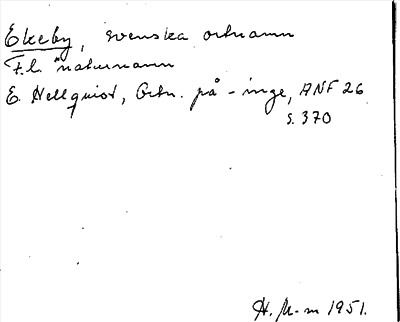 Ekeby, svenska ortnamn
F.l. naturnamn
E. Hellquist, Ortn. på -inge, ANF 26
s. 370
H. M-m 1951.